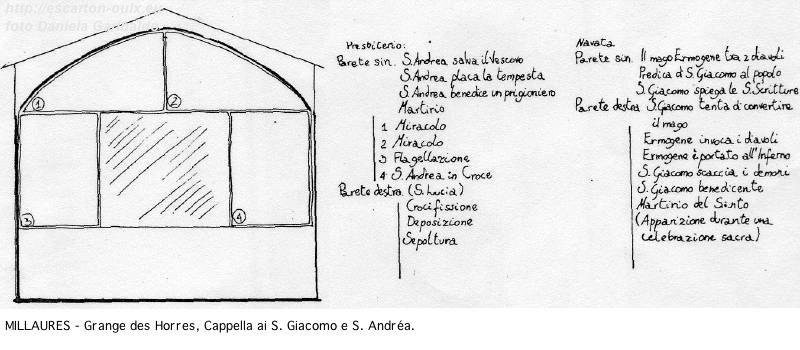 http://escarton-oulx.eu
foto Daniela Garibaldo
1
2
3
4
Presbiterio:
Parete sin. S. Andrea salva il Vescovo
S. Andrea placa la tempesta
S. Andrea benedice un prigioniero
Martirio
1 Miracolo
2 Miracolo
3 Flagellazione
4 S. Andrea in Croce
Parete destra (S. Lucia)
Crocifissione
Deposizione
Sepoltura
Navata
Parete sin. Il mago Ermogene tra 2 diavoli
Predica di S. Giacomo al popolo
S. Giacomo spiega le S. Scritture
Parete destra S. Giacomo tenta di convertire
il mago
Ermogene invoca i diavoli
Ermogene è portato all'Inferno
S. Giacomo scaccia i demoni
S. Giacomo benedicente
Martirio del Santo
(Apparizione durante una
celebrazione sacra)
MILLAURES - Grange des Horres, Cappella ai S. Giacomo e S. Andréa.